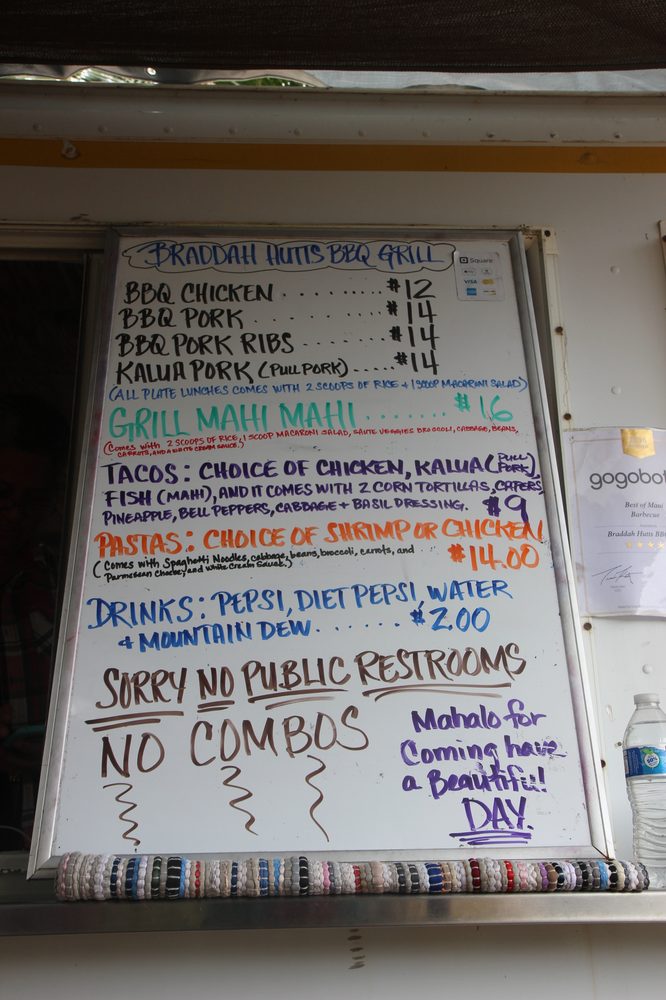 BRADDAH HUTTS BBQ GRILL
Square
VISA
BBQ CHICKEN ......... $12
BBQ PORK ............ $14
BBQ PORK RIBS ....... $14
KALUA PORK (PULL PORK) ..... $14
(ALL PLATE LUNCHES COMES WITH 2 SCOOPS OF RICE + 1 SCOOP MACARONI SALAD)
GRILL MAHI MAHI ....... $16
(COMES WITH 2 SCOOPS OF RICE, 1 SCOOP MACARONI SALAD, SAUTE VEGGIES BROCCOLI, CABBAGE, BEANS,
CARROTS, AND A WHITE CREAM SAUCE.)
TACOS: CHOICE OF CHICKEN, KALUA (PULL PORK),
FISH (MAHI), AND IT COMES WITH 2 CORN TORTILLAS, CAPERS,
PINEAPPLE, BELL PEPPERS, CABBAGE + BASIL DRESSING. $9
PASTAS: CHOICE OF SHRIMP OR CHICKEN
(Comes with Spaghetti Noodles, cabbage, beans, broccoli, carrots, and $14.00
Parmesan Cheese, and White Cream Sauce.)
DRINKS: PEPSI, DIET PEPSI, WATER
+ MOUNTAIN DEW ...... $2.00
SORRY NO PUBLIC RESTROOMS
NO COMBOS
Mahalo for
Coming have
a Beautiful!
DAY.
gogobot
Best of Maui
Barbecue
Braddah Hutts BBQ